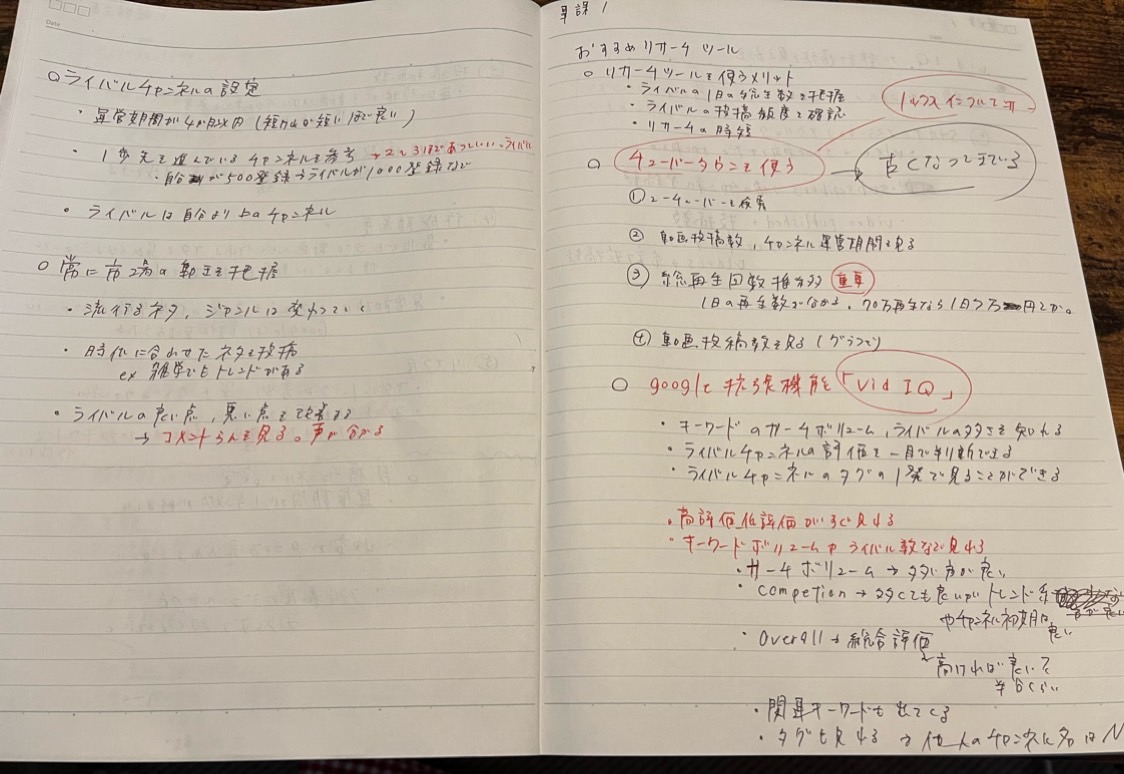 Date
○ライバルチャンネルの設定
・運営期間が4か月以内 (短ければ短い ほど良い)
・1歩先を進んでいるチャンネルを参考 →2~3ほどあっていい、ライバル
・自分が500登録→ライバルが1000登録など
・ライバルは自分より上のチャンネル
○常に市場の動きを把握
・流行るネタ、ジャンルは変わっていく
・時代に合わせたネタを投稿
ex 雑学でもトレンドがある
・ライバルの良い点、悪い点を改善する
→コメントらんを見る。声が分かる
おすすめリサーチツール
○リサーチツールを使うメリット
・ライバルの1日の総生数を把握
・ライバルの投稿頻度を確認
・リサーチの時短
○チューバータウンを使う → 古くなってきている
①ユーチューバーを検索
②動画投稿数、チャンネル運営期間を見る
③総再生回数推移 重要
1日の再生数が分かる。70万再生なら1日7万円とか。
④動画投稿数を見る (グラフで)
○googleで拡張機能「vid IQ」
・キーワードのサーチボリューム、ライバルの多さを知れる
・ライバルチャンネルの評価を一目で判断できる
・ライバルチャンネルのタグの1発で見ることができる
・高評価低評価がすぐ見れる
・キーワードボリュームやライバル数など見れる
・サーチボリューム→多い方が良い
・competion→多くても良いがトレンド系
やチャンネル初期は
良い
・Overall→総合評価
高ければ良いって
半分くらい
・関連キーワードも出てくる
・タグも見れる →他人のチャンネル名はN